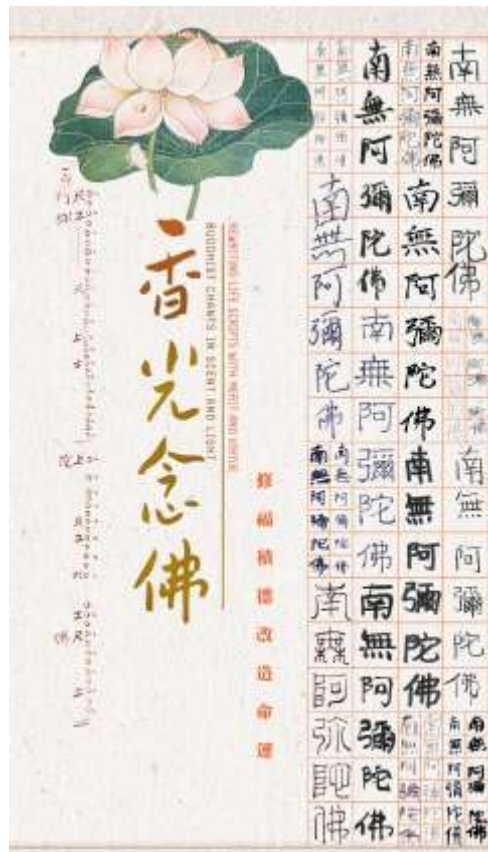 香光念佛
REWRITING LIFE SCRIPTS WITH MERIT AND VIRTUE
BUDDHIST CHANTS IN SCENT AND LIGHT
修福積德改造命運
南無阿彌陀佛
南無阿彌陀佛
南無阿彌陀佛
南無阿彌陀佛
南無阿彌陀佛
南無阿彌陀佛
南無阿彌陀佛
南無阿彌陀佛
南無阿彌陀佛
南無阿彌陀佛
南無阿彌陀佛
南無阿彌陀佛
南無阿彌陀佛
南無阿彌陀佛
南無阿弥陀佛